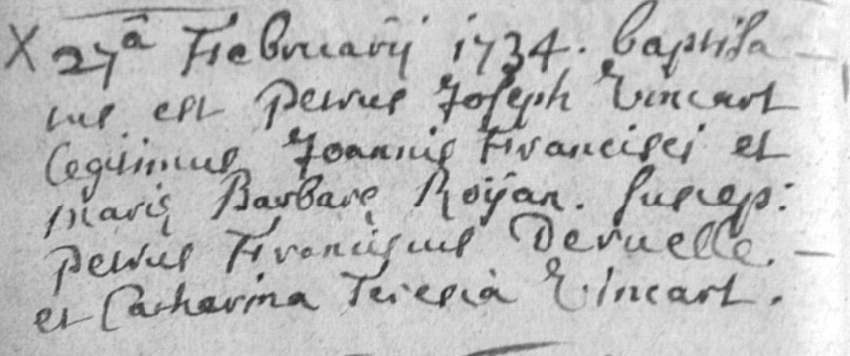 X 27â Februarij 1734. baptisa
tus est Petrus Joseph Vincart
legitimus Joannis Francisci et
Marię Barbarę Roÿan. suscep:
Petrus Franciscus Deruelle. —
et Catharina Teresia Vincart.